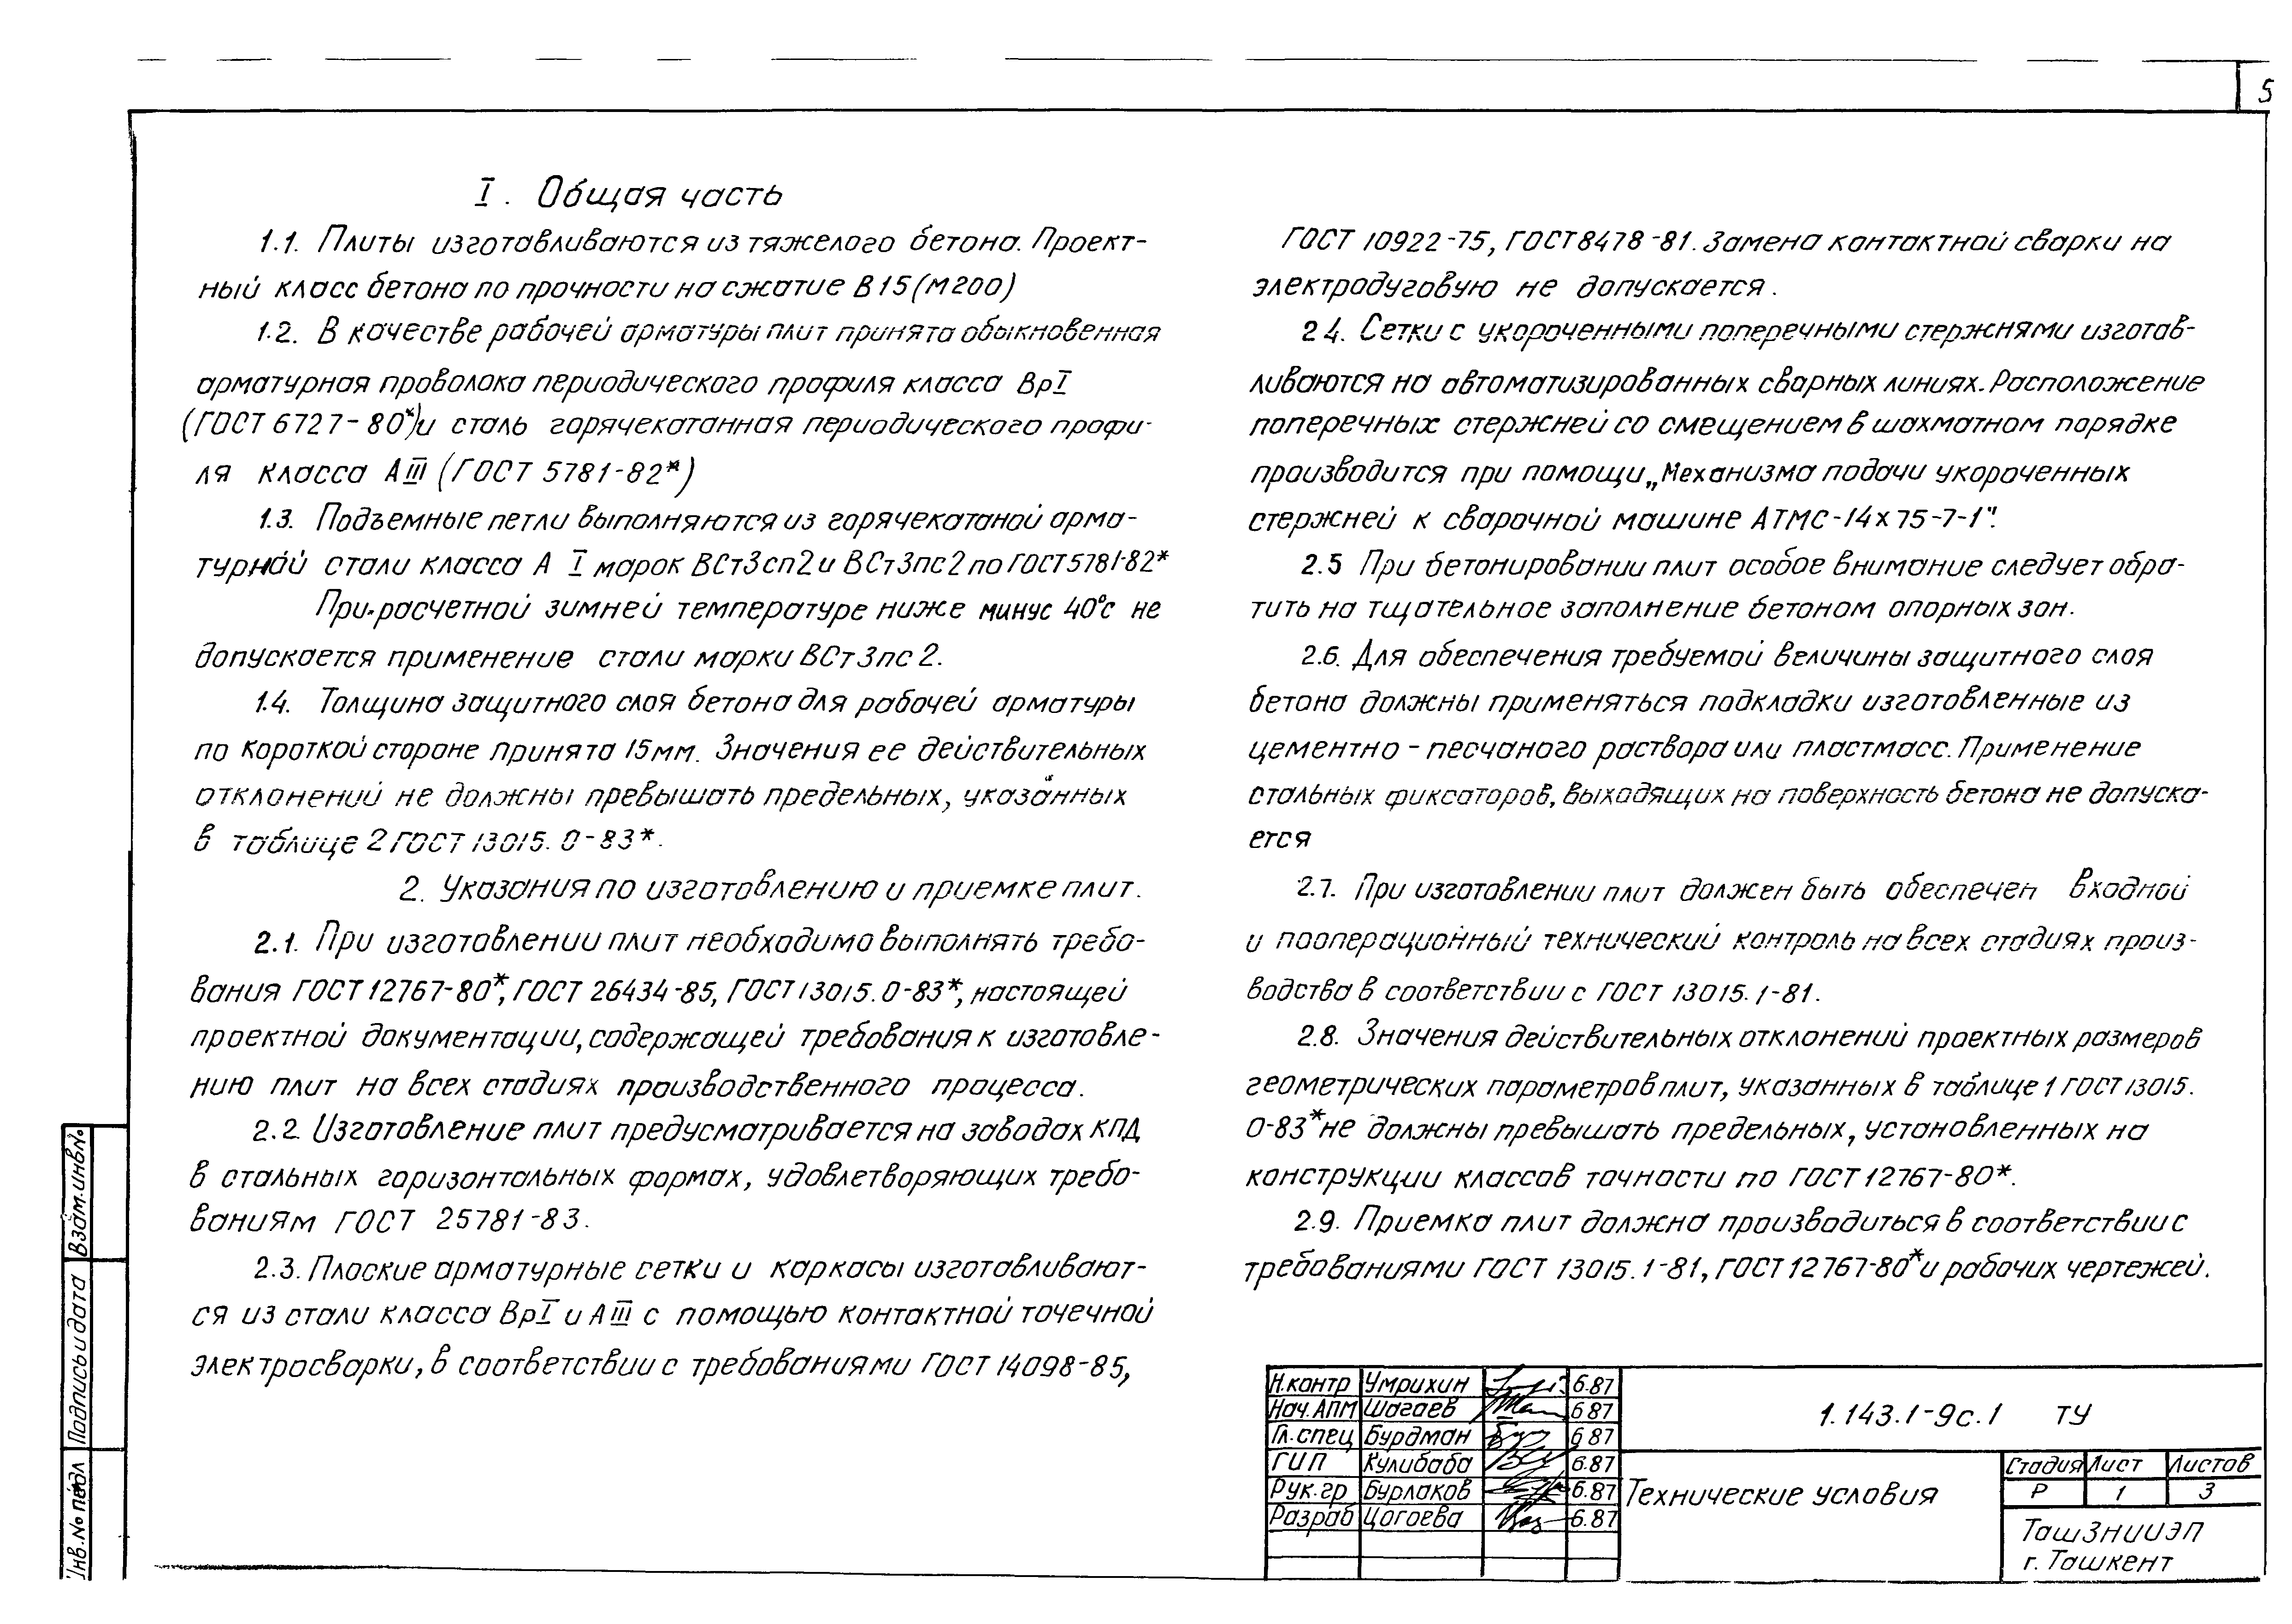 5
I. Общая часть
1.1. Плиты изготавливаются из тяжелого бетона. Проект-
ный класс бетона по прочности на сжатие В15 (М200)
1.2. В качестве рабочей арматуры плит принята обыкновенная
арматурная проволока периодического профиля класса ВрI
(ГОСТ 6727-80*) и сталь горячекатанная периодического профи-
ля класса АIII (ГОСТ 5781-82*)
1.3. Подъемные петли выполняются из горячекатаной арма-
турной стали класса А I марок ВСт3сп2 и ВСт3пс2 по ГОСТ 5781-82*
При расчетной зимней температуре ниже минус 40°с не
допускается применение стали марки ВСт3пс2.
1.4. Толщина защитного слоя бетона для рабочей арматуры
по короткой стороне принята 15мм. Значения ее действительных
отклонений не должны превышать предельных, указанных
в таблице 2 ГОСТ 13015.0-83*.
2. Указания по изготовлению и приемке плит.
2.1. При изготовлении плит необходимо выполнять требо-
вания ГОСТ 12767-80*, ГОСТ 26434-85, ГОСТ 13015.0-83*, настоящей
проектной документации, содержащей требования к изготовле-
нию плит на всех стадиях производственного процесса.
2.2. Изготовление плит предусматривается на заводах КПД
в стальных горизонтальных формах, удовлетворяющих требо-
ваниям ГОСТ 25781-83.
2.3. Плоские арматурные сетки и каркасы изготавливают-
ся из стали класса ВрI и АIII с помощью контактной точечной
электросварки, в соответствии с требованиями ГОСТ 14098-85,
ГОСТ 10922-75, ГОСТ 8478-81. Замена контактной сварки на
электродуговую не допускается.
2 4. Сетки с укороченными поперечными стержнями изготав-
ливаются на автоматизированных сварных линиях. Расположение
поперечных стержней со смещением в шахматном порядке
производится при помощи „Механизма подачи укороченных
стержней к сварочной машине АТМС-14х75-7-1".
2.5 При бетонировании плит особое внимание следует обра-
тить на тщательное заполнение бетоном опорных зон.
2.6. Для обеспечения требуемой величины защитного слоя
бетона должны применяться подкладки изготовленные из
цементно-песчаного раствора или пластмасс. Применение
стальных фиксаторов, выходящих на поверхность бетона не допуска-
ется
2.7. При изготовлении плит должен быть обеспечен входной
и пооперационный технический контроль на всех стадиях произ-
водства в соответствии с ГОСТ 13015.1-81.
2.8. Значения действительных отклонений проектных размеров
геометрических параметров плит, указанных в таблице 1 ГОСТ 13015.
0-83* не должны превышать предельных, установленных на
конструкции классов точности по ГОСТ 12767-80*.
2.9. Приемка плит должна производиться в соответствии с
требованиями ГОСТ 13015.1-81, ГОСТ 12767-80* и рабочих чертежей.
Взам.инв.№
Подпись и дата
Инв.№ подл
Н.контр Умрихин 6.87
Нач.АПМ Шагаев 6 87
Гл.спец Бурдман 6 87
ГИП Кулибаба 6.87
Рук.гр Бурлаков 6.87
Разраб Цогоева 6.87
1.143.1-9с.1 ТУ
Технические условия
Стадия Лист Листов
Р 1 3
ТашЗНИИЭП
г. Ташкент